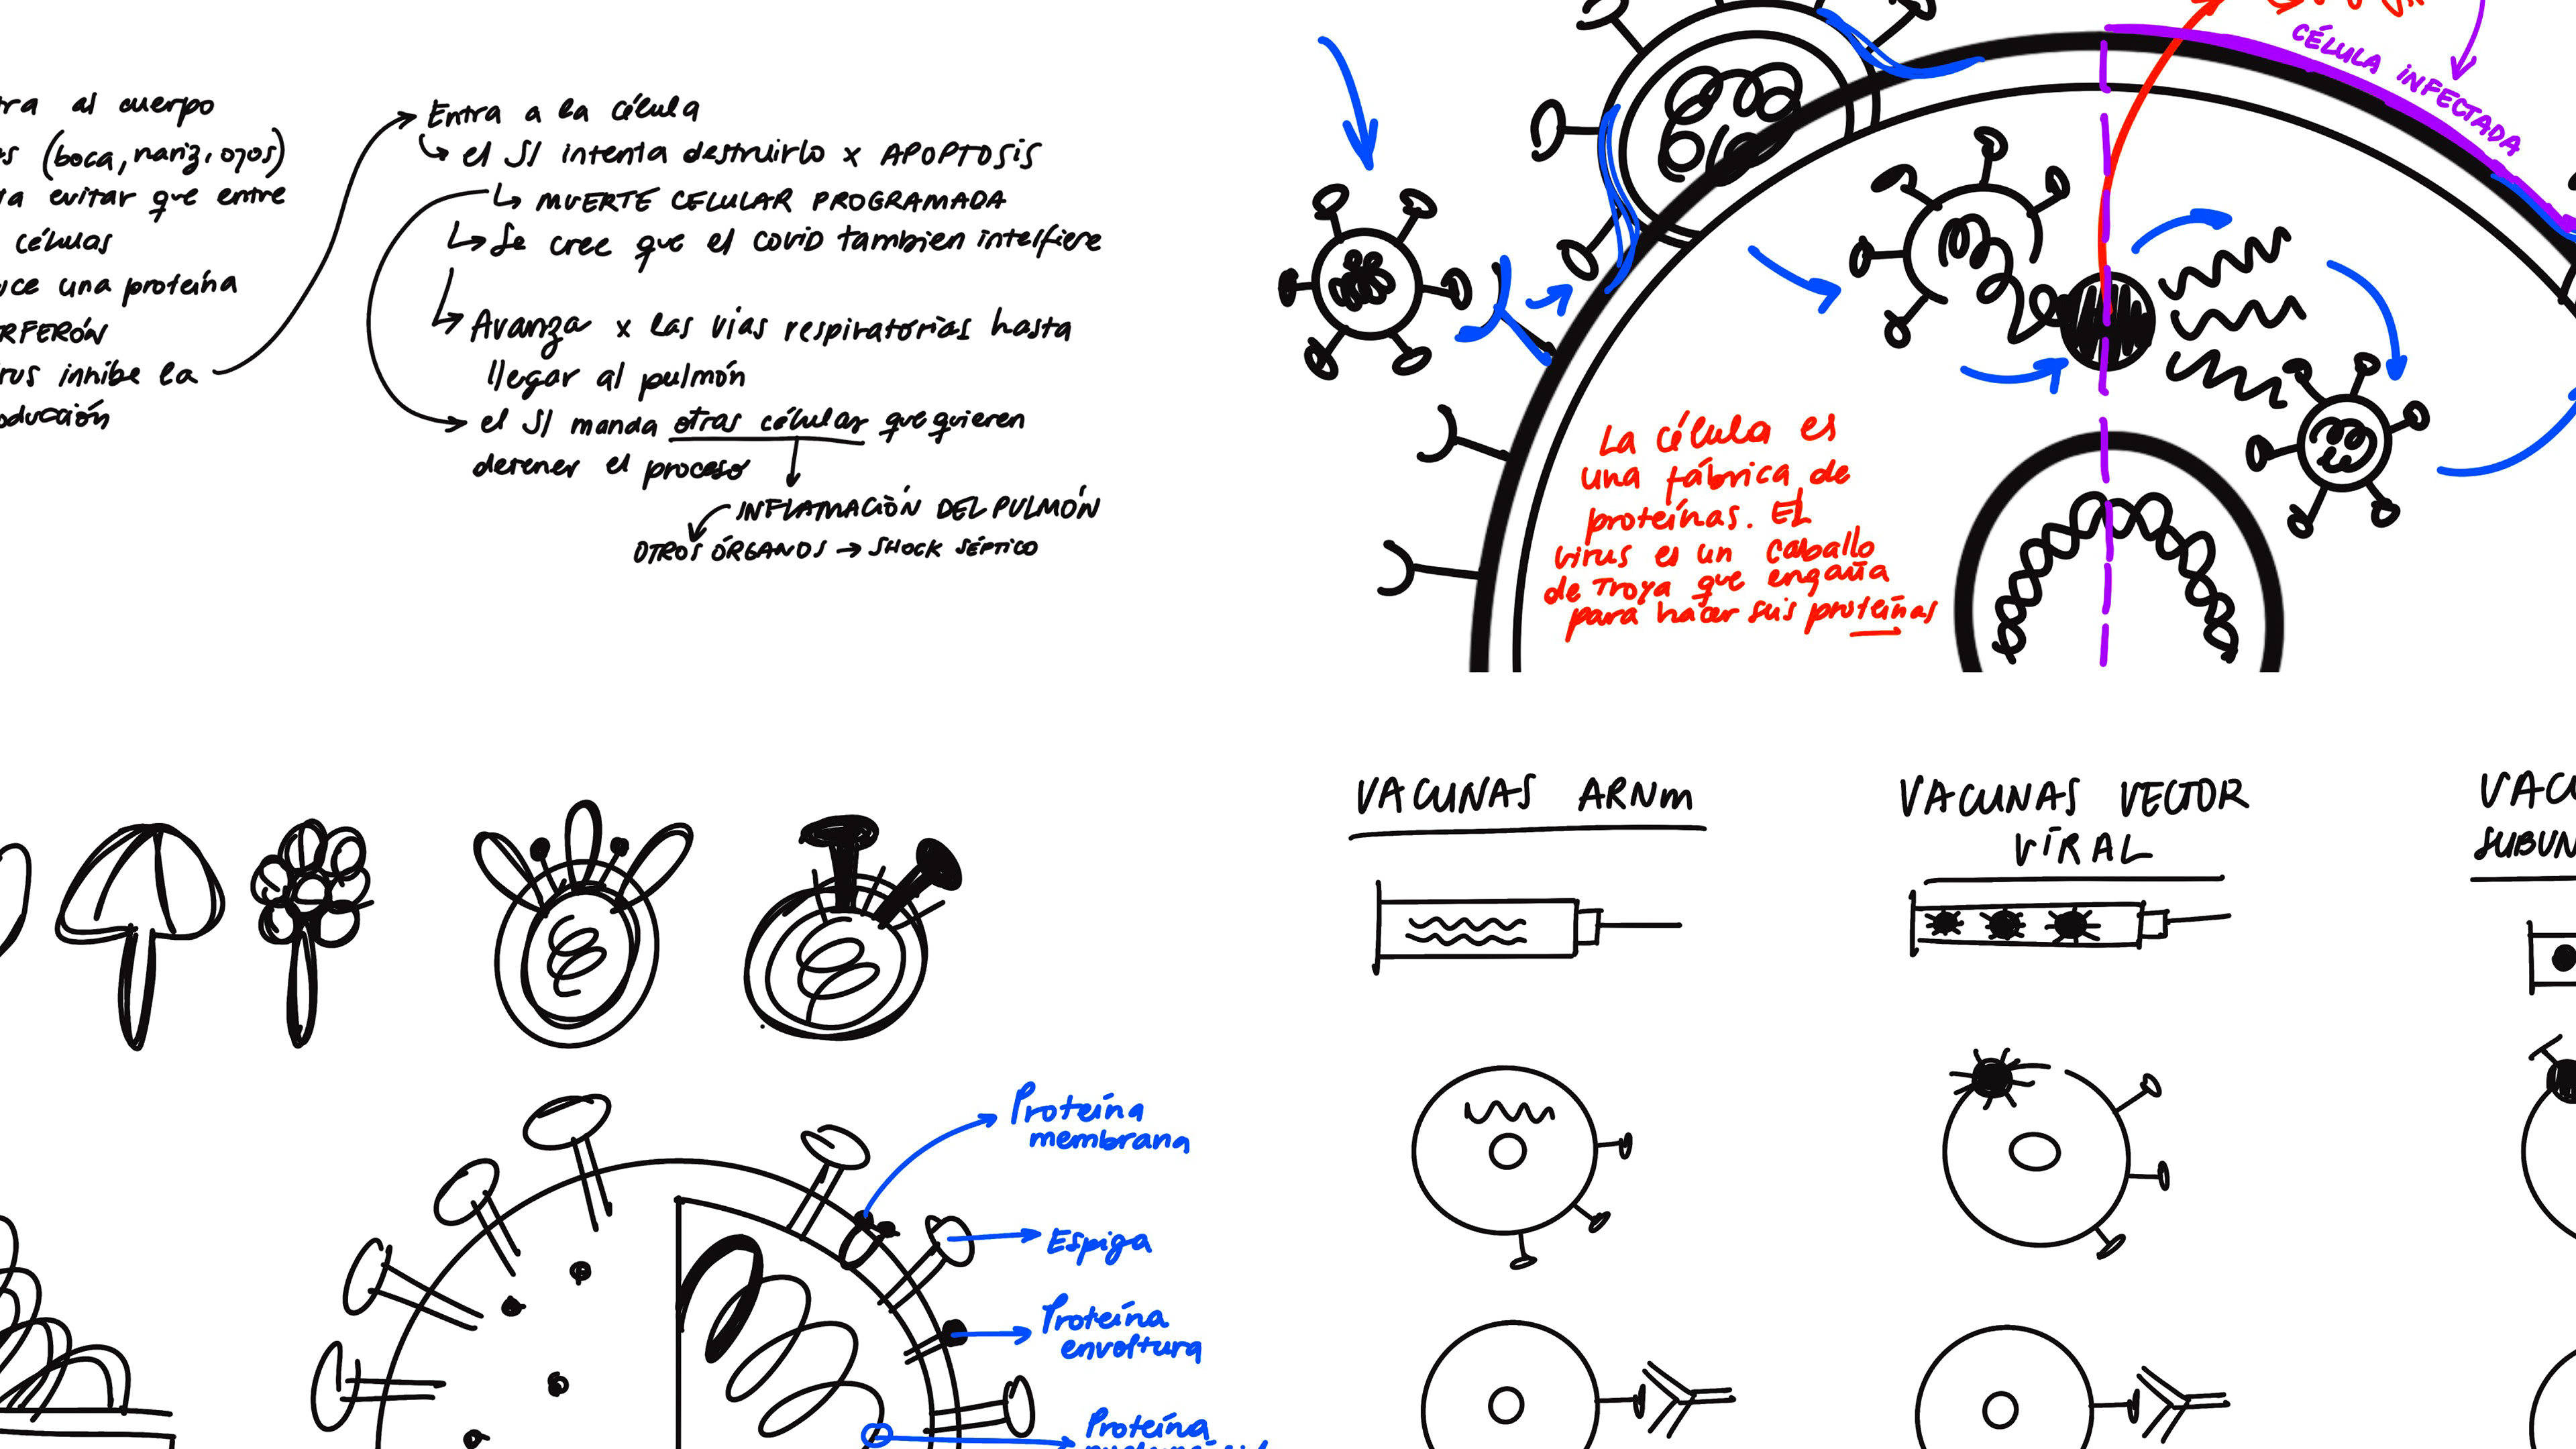 al cuerpo
(boca, nariz, ojos)
evitar que entre
células
una proteína
inhibe la
Entra a la célula
↳ el SI intenta destruirlo x APOPTOSIS
↳ MUERTE CELULAR PROGRAMADA
↳ Se cree que el COVID tambien intelfiere
↳ Avanza x las vías respiratorias hasta
llegar al pulmón
el SI manda otras células que quieren
detener el proceso
INFLAMACIÓN DEL PULMÓN
OTROS ÓRGANOS → SHOCK SÉPTICO
CÉLULA INFECTADA
La célula es
una fábrica de
proteínas. EL
virus es un caballo
de Troya que engaña
para hacer sus proteínas
VACUNAS ARNm
VACUNAS VECTOR
VÍRAL
Proteína
membrana
Espiga
Proteína
envoltura
Proteína